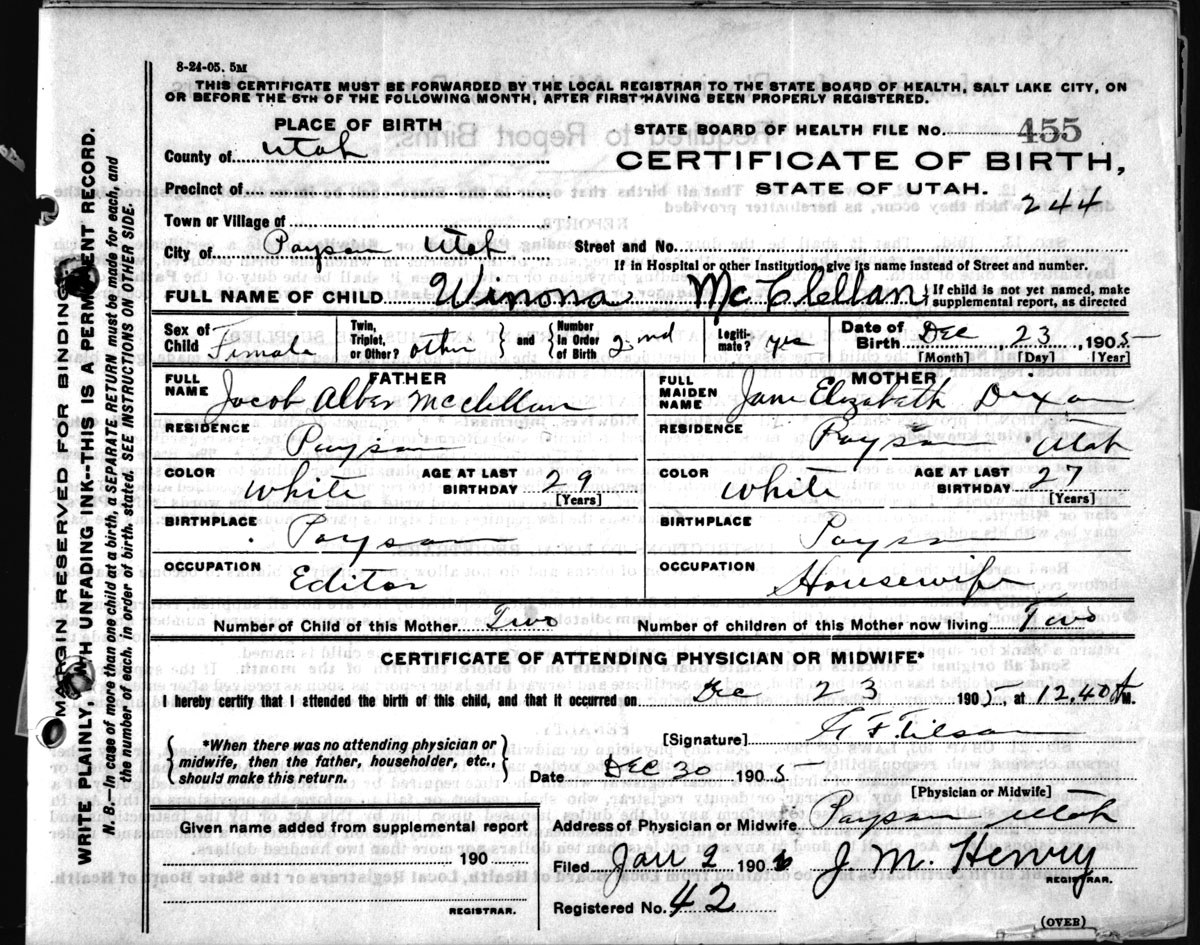 8-24-05. 5M
THIS CERTIFICATE MUST BE FORWARDED BY THE LOCAL REGISTRAR TO THE STATE BOARD OF HEALTH, SALT LAKE CITY, ON
OR BEFORE THE 5TH OF THE FOLLOWING MONTH, AFTER FIRST HAVING BEEN PROPERLY REGISTERED.
PLACE OF BIRTH
County of Utah
Precinct of
Town or Village of
City of Payson Utah
STATE BOARD OF HEALTH FILE NO. 455
CERTIFICATE OF BIRTH,
STATE OF UTAH.
244
Street and No.
If in Hospital or other Institution, give its name instead of Street and number.
FULL NAME OF CHILD Winona McClellan { If child is not yet named, make supplemental report, as directed
Sex of Child Female Twin, Triplet, or Other? other } and { Number In Order of Birth 2nd Legitimate? yes Date of Birth Dec 23, 1905
[Month] [Day] [Year]
FATHER
FULL NAME Jacob Alber McClellan
RESIDENCE Payson
COLOR White AGE AT LAST BIRTHDAY 29 [Years]
BIRTHPLACE Payson
OCCUPATION Editor
MOTHER
FULL MAIDEN NAME Jane Elizabeth Dixon
RESIDENCE Payson Utah
COLOR White AGE AT LAST BIRTHDAY 27 [Years]
BIRTHPLACE Payson
OCCUPATION Housewife
Number of Child of this Mother Two Number of children of this Mother now living Two
CERTIFICATE OF ATTENDING PHYSICIAN OR MIDWIFE*
I hereby certify that I attended the birth of this child, and that it occurred on Dec 23 1905, at 12.40 A M.
{ *When there was no attending physician or midwife, then the father, householder, etc., should make this return. }
[Signature]
Date Dec 30 1905
[Physician or Midwife]
Given name added from supplemental report
190
REGISTRAR.
Address of Physician or Midwife Payson Utah
Filed Jan 2 1906 J M. Henry
REGISTRAR.
Registered No. 42
(OVER)
MARGIN RESERVED FOR BINDING
WRITE PLAINLY, WITH UNFADING INK--THIS IS A PERMANENT RECORD.
N. B.--In case of more than one child at a birth, a SEPARATE RETURN must be made for each, and
the number of each, in order of birth, stated. SEE INSTRUCTIONS ON OTHER SIDE.